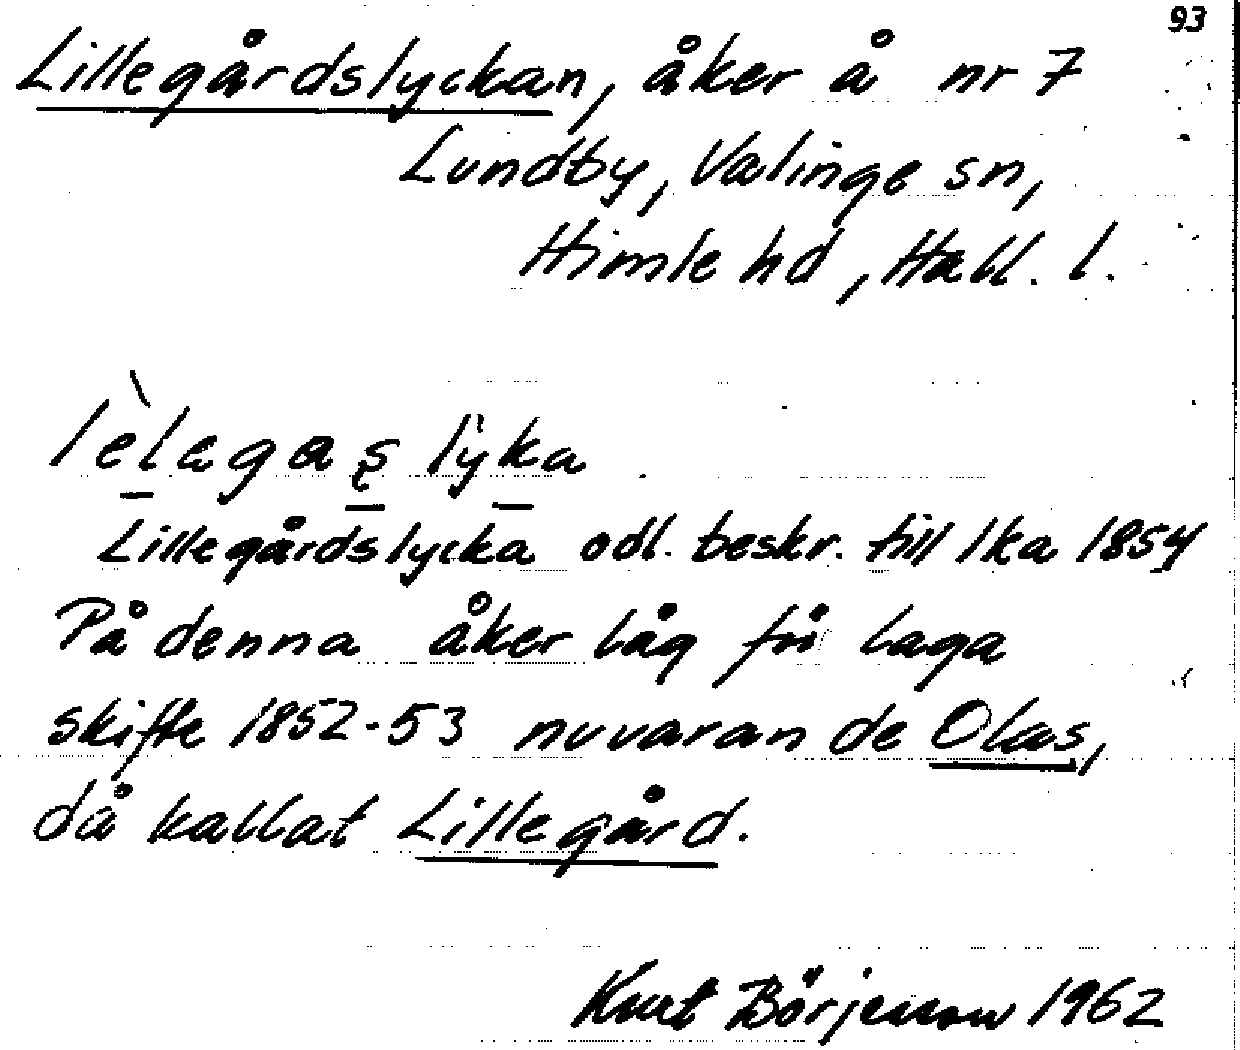 93
Lillegårdslyckan, åker å nr 7
Lundby, Valinge sn,
Himle hd, Hall. l.
lèlagas lỳka
Lillegårdslycka odl. beskr. till lka 1854
På denna åker låg före laga
skifte 1852-53 nuvarande Olas,
då kallat Lillegård.
Knut Börjesson 1962